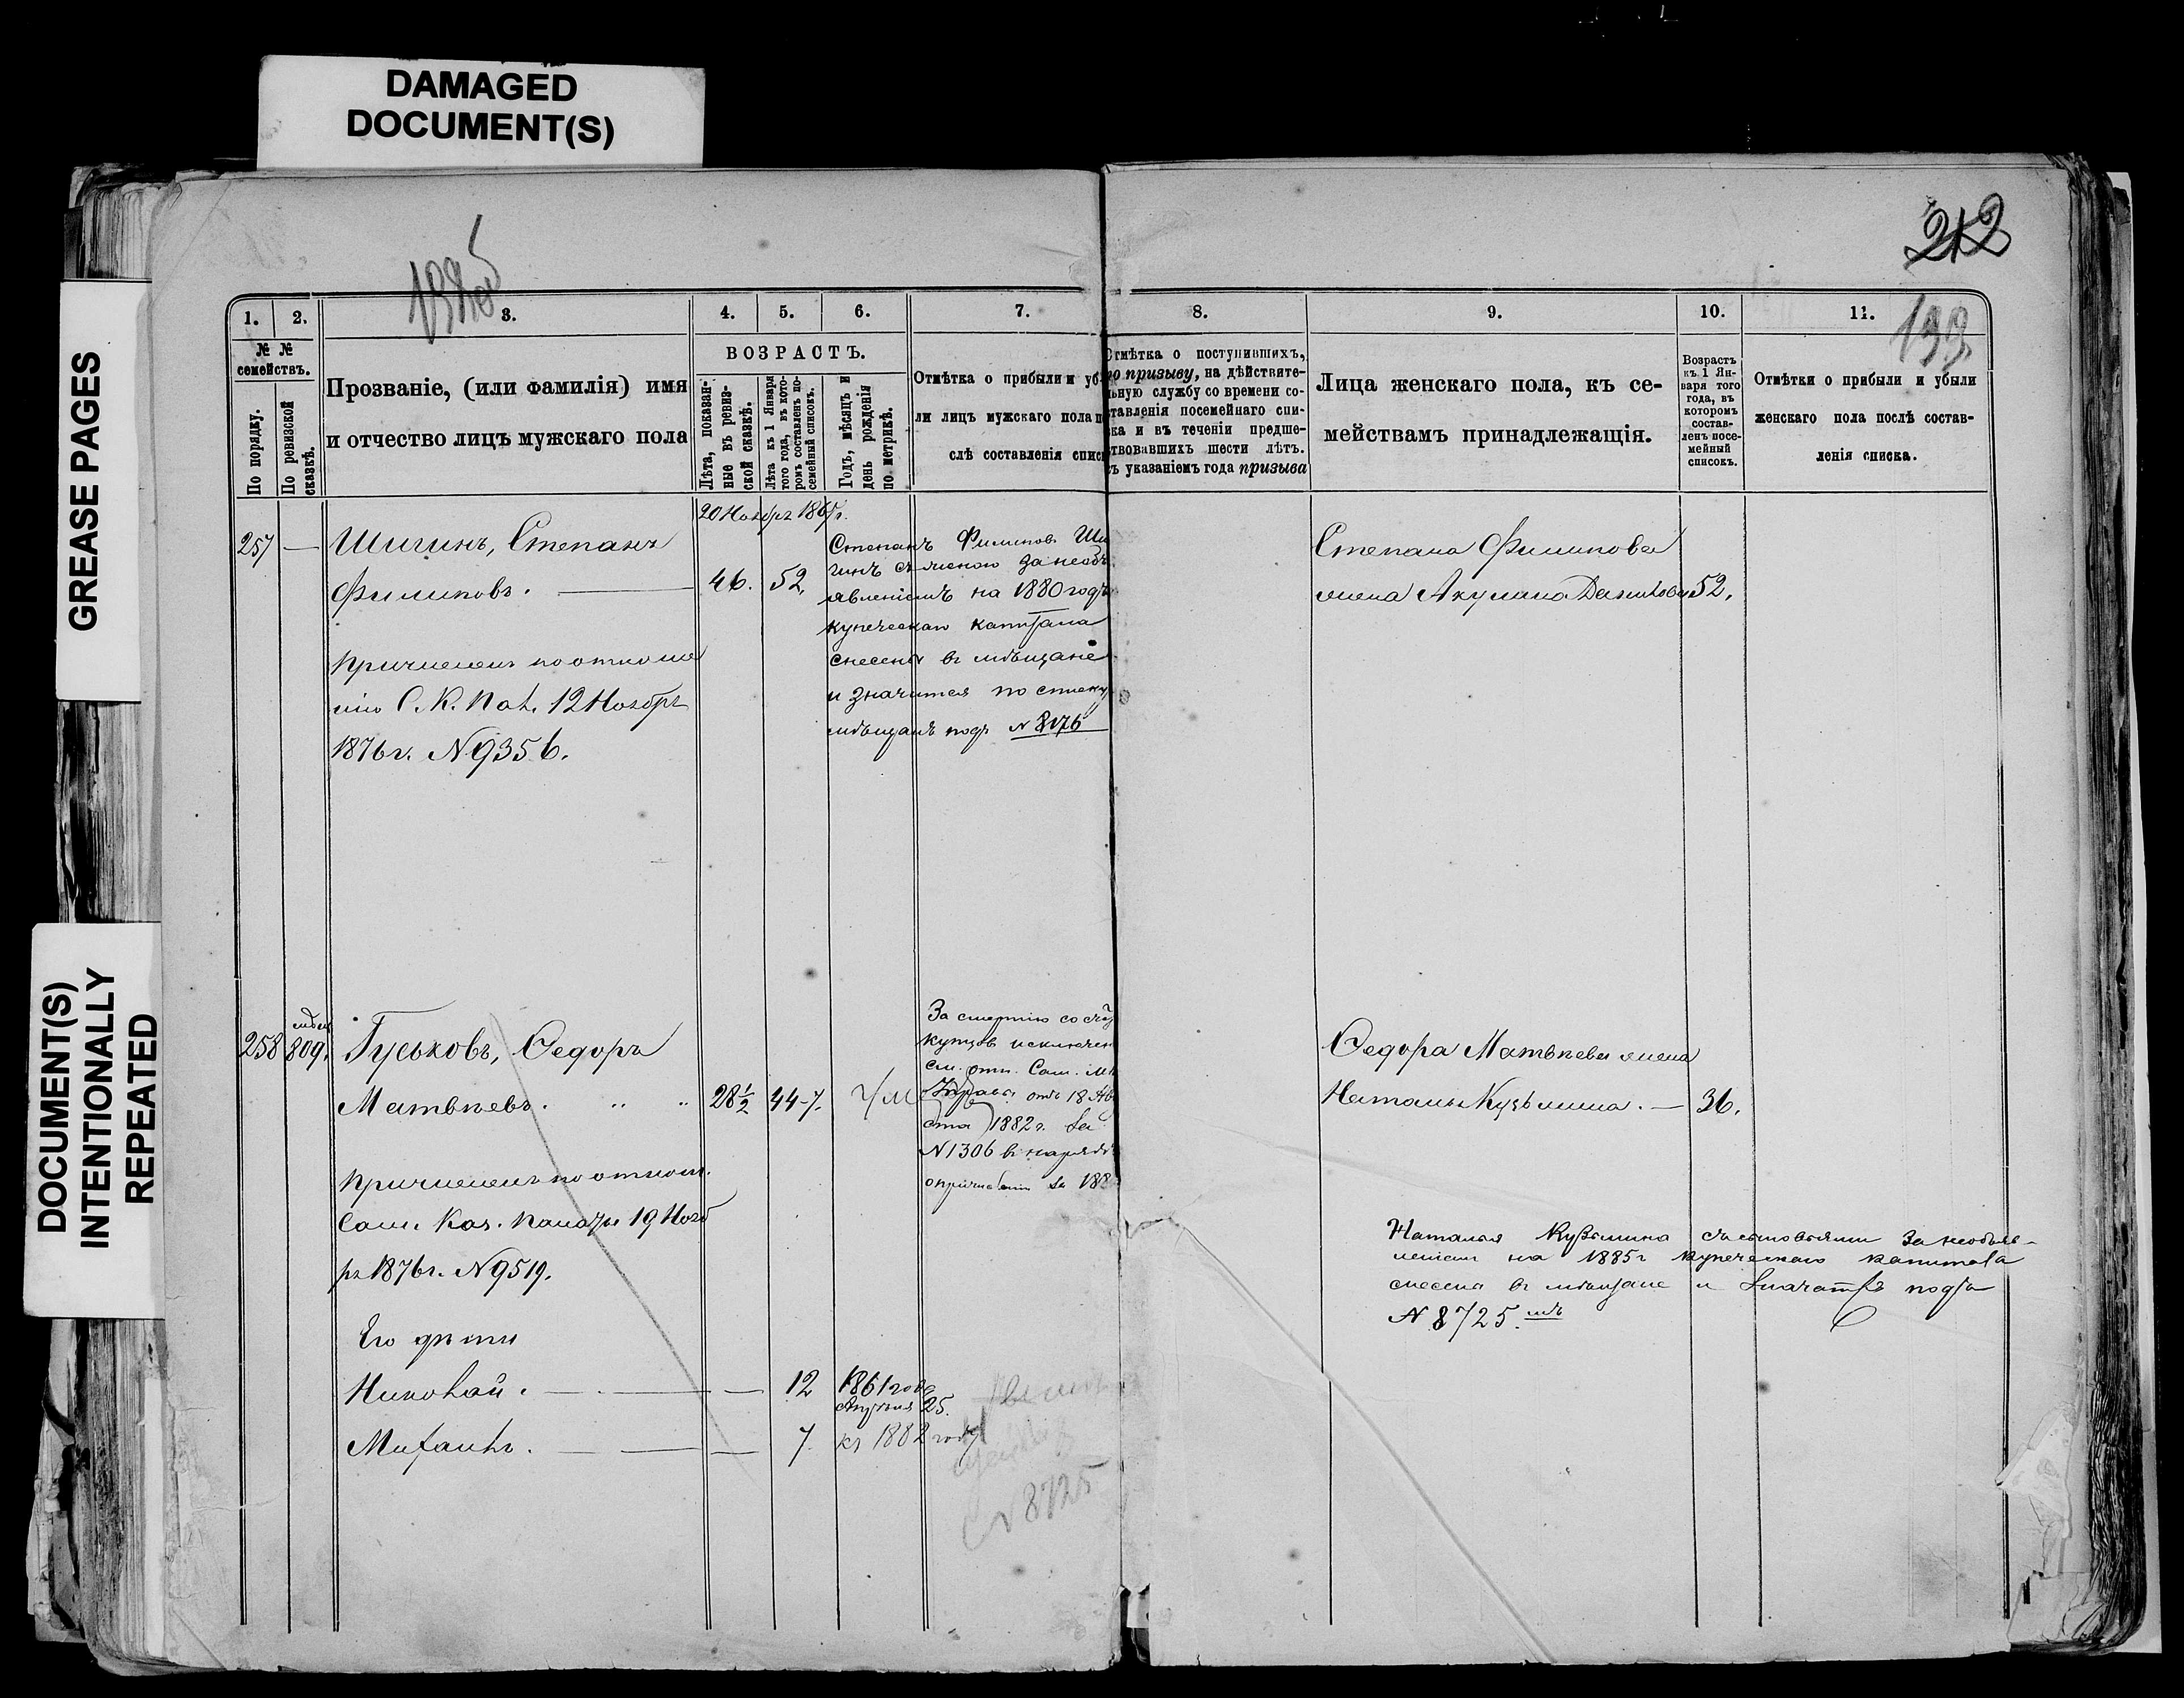 DAMAGED
DOCUMENT(S)
GREASE PAGES
DOCUMENT(S)
INTENTIONALLY
REPEATED
212
199
1.
2.
3.
4.
5.
6.
7.
8.
9.
10.
11.
№ №
семействъ.
По порядку.
По ревизской
сказкѣ.
Прозваніе, (или фамилія) имя
и отчество лицъ мужскаго пола
ВОЗРАСТЪ.
Лѣта, показан-
ные въ ревиз-
ской сказкѣ.
Лѣта къ 1 Января
того года, въ кото-
ромъ составленъ по-
семейный списокъ.
Годъ, мѣсяцъ и
день рожденія
по метрикѣ.
Отмѣтка о прибыли и уб-
ли лицъ мужскаго пола п
слѣ составленія списк
Отмѣтка о поступившихъ,
по призыву, на дѣйствите-
льную службу со времени со-
ставленія посемейнаго спи-
ска и въ теченіи предше-
ствовавшихъ шести лѣтъ.
съ указаніемъ года призыва
Лица женскаго пола, къ се-
мействамъ принадлежащія.
Возрастъ
къ 1 Ян-
варя того
года, въ
которомъ
состав-
ленъ посе-
мейный
списокъ.
Отмѣтки о прибыли и убыли
женскаго пола послѣ состав-
ленія списка.
257 — Шигинъ, Степанъ
Филиповъ. — 46. 52.
Причисленъ по отноше
нію С. К. Пал. 12 Ноябр
1876 г. N 9356.
20 Ноябр 1867 г.
Степанъ Филиповъ Ши
гинъ съ женою за необъ
явленіемъ на 1880 годъ
купеческаго капитала
снесены въ мѣщане
и значится по списку
мѣщанъ подъ N 8176
Степана Филипова
жена Акулина Данилова 52.
258 809. Гуськовъ, Федоръ
Матвѣевъ. " " 28½ 44-7.
Причисленъ по отнош.
Сам. Каз. Палаты 19 Нояб
ря 1876 г. N 9519.
За смертію со сч
купцовъ исключен
см. отн. Сам. М
Управы отъ 18 Ав
ста 1882 г. за
N 1306 въ нарядѣ
о причисленіи за 188
Федора Матвѣева жена
Наталья Кузьмина. — 36.
Наталья Кузьмина съ сыновьями за необъяв-
леніем на 1885 г купеческаго капитала
снесена въ мѣщане и значатся подъ
N 8725. мѣ
Его дѣти
Николай. — 12 1861 года
Апрѣля 25.
Михаилъ. — 7. къ 1882 году
N 8725